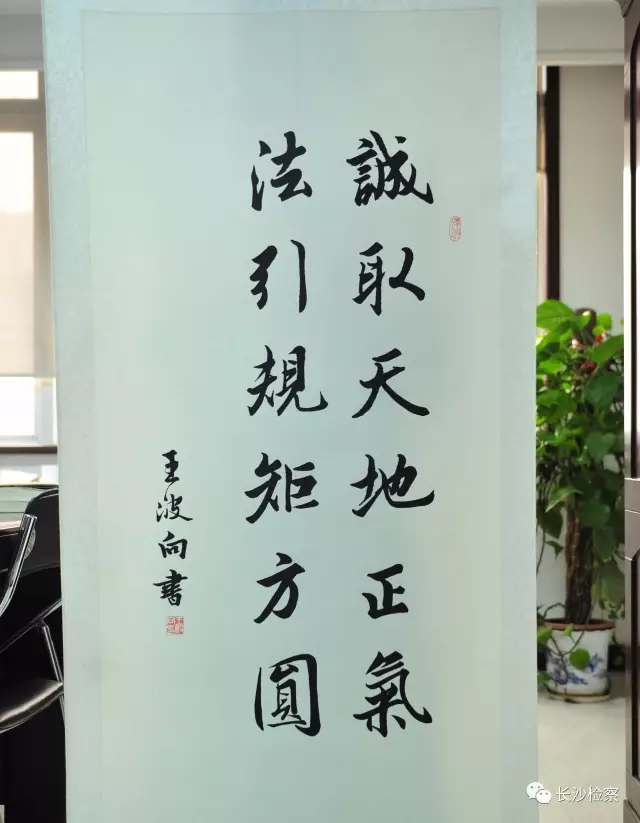 誠取天地正氣
法引規矩方圓
王波向書
长沙检察